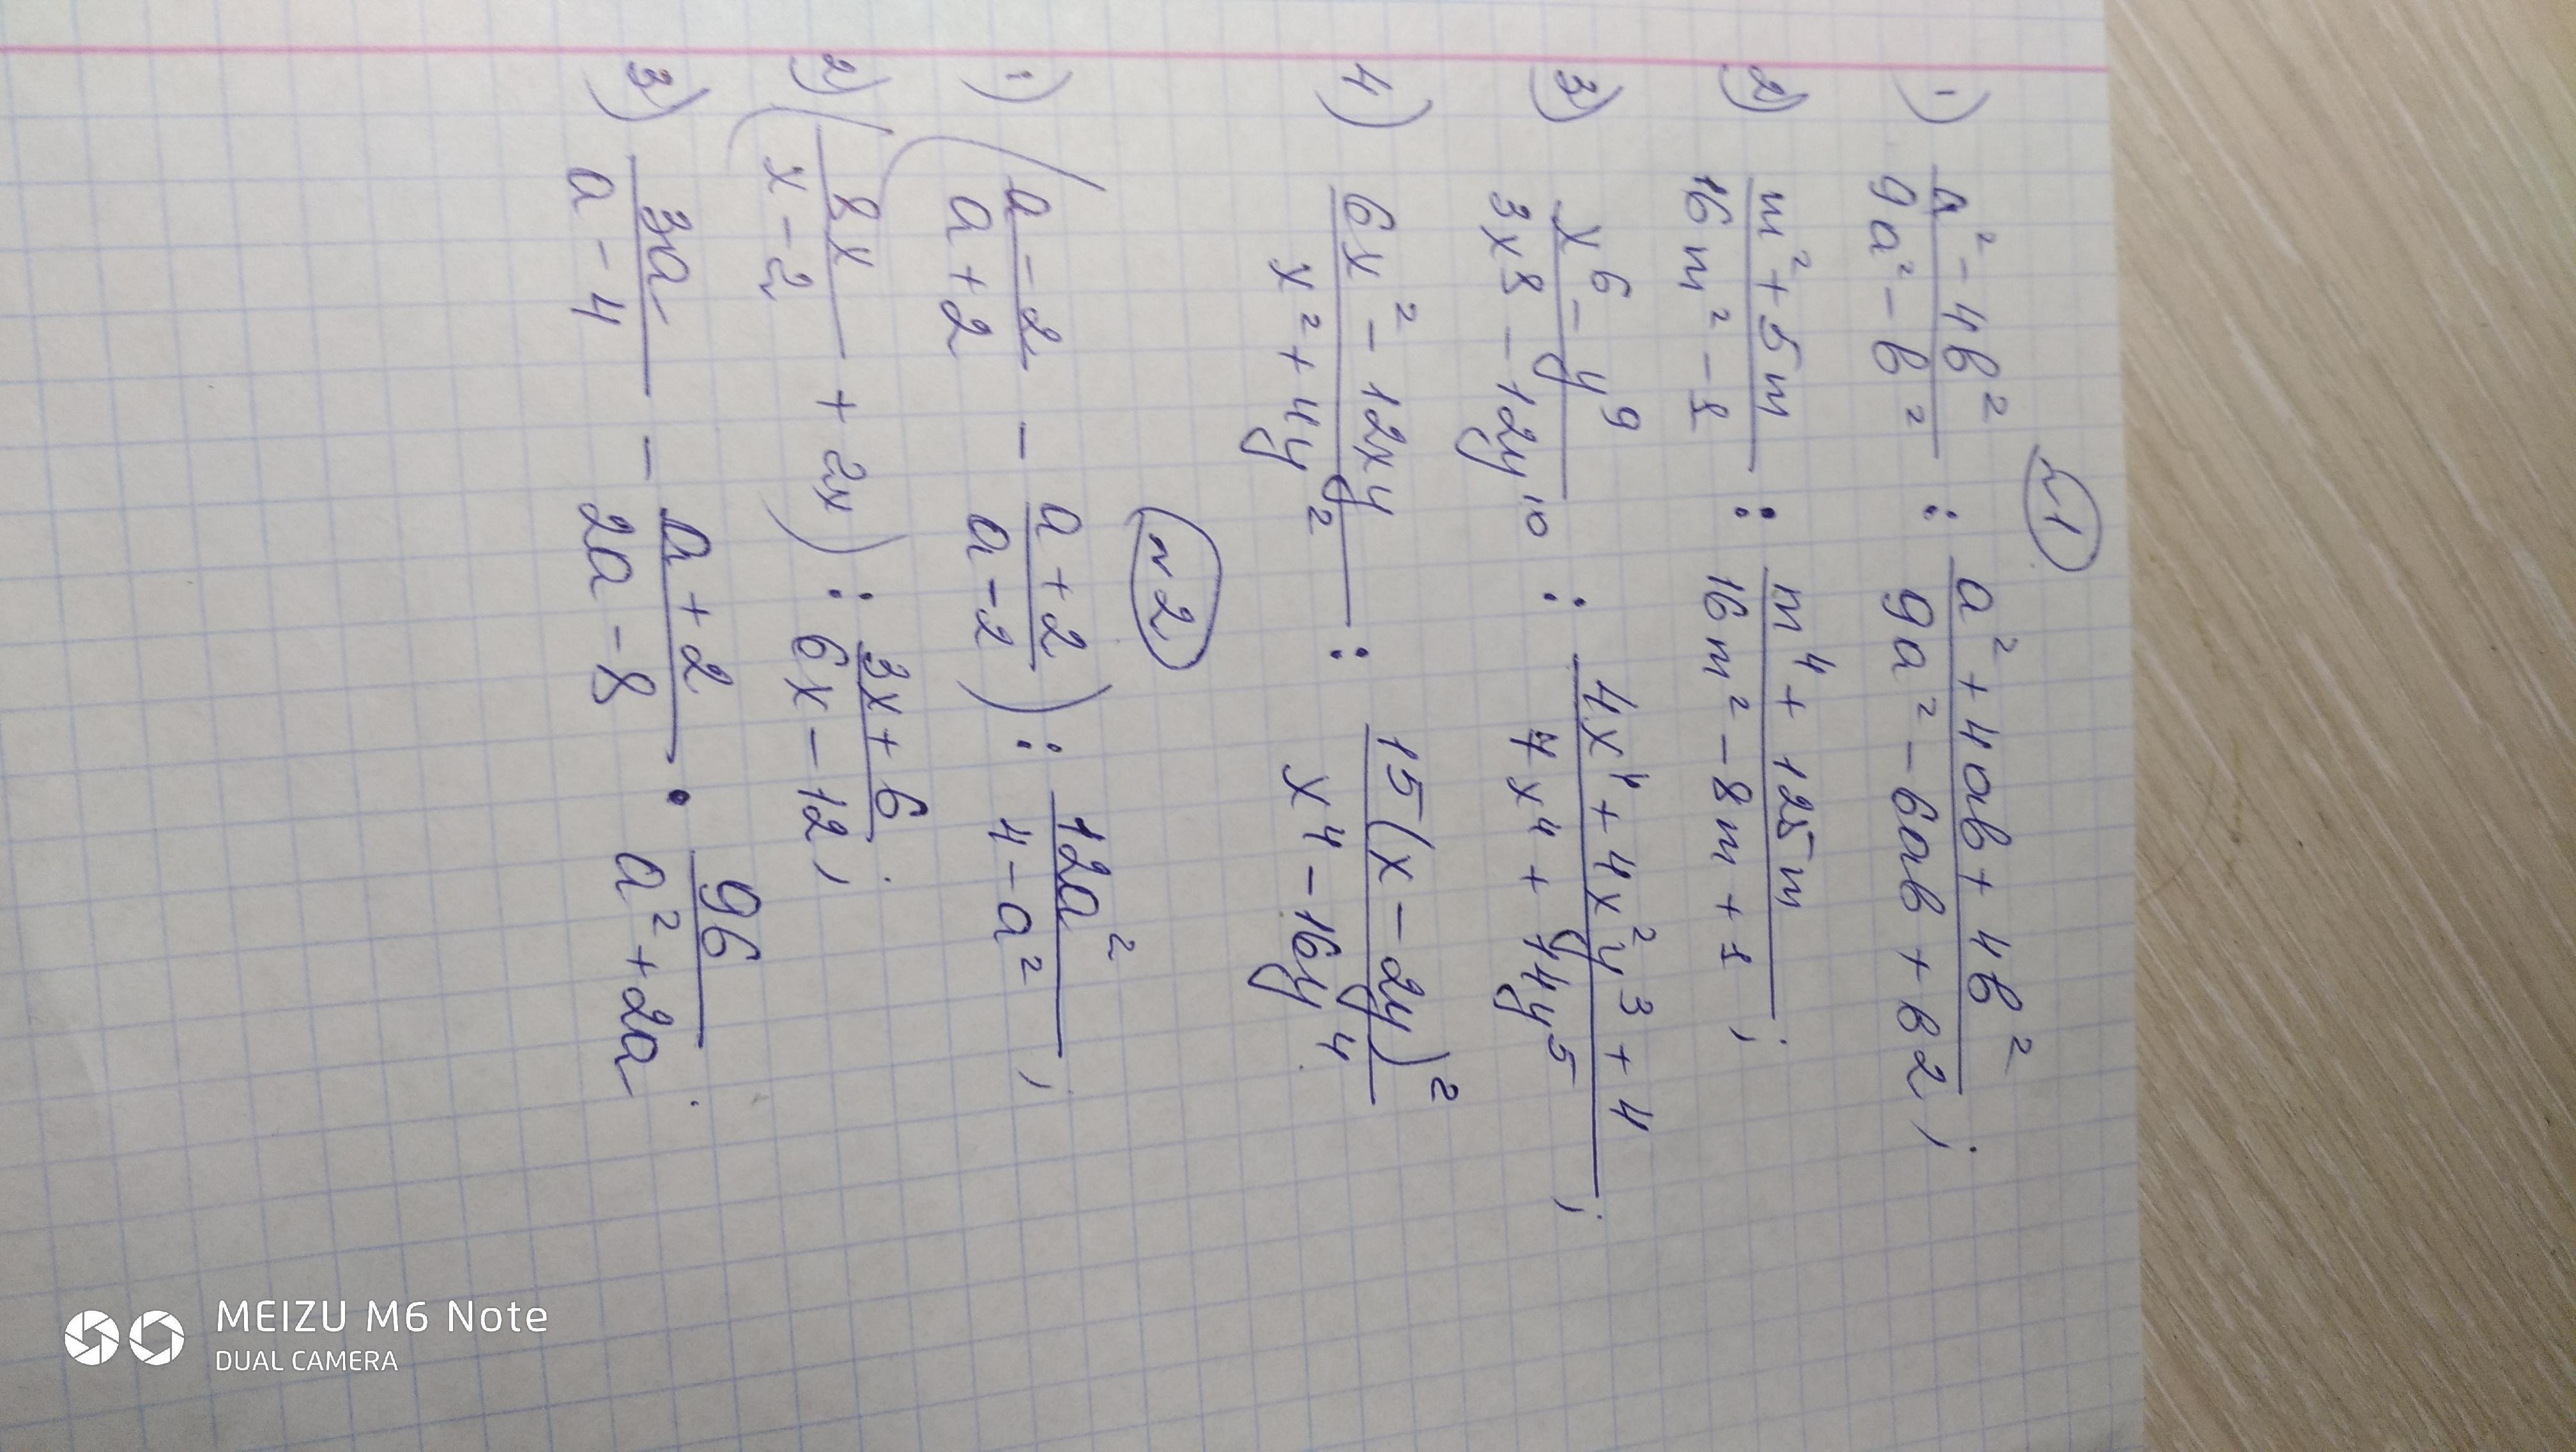 №1
1) (a² - 4b²)/(9a² - b²) : (a² + 4ab + 4b²)/(9a² - 6ab + b2);
2) (m² + 5m)/(16m² - 1) : (m⁴ + 125m)/(16m² - 8m + 1);
3) (x⁶ - y⁹)/(3x⁸ - 12y¹⁰) : (4x⁴ + 4x²y³ + 4)/(4x⁴ + 44y⁵);
4) (6x² - 12xy)/(x² + 4y²) : (15(x - 2y)²)/(x⁴ - 16y⁴)
№2
1) ((a - 2)/(a + 2) - (a + 2)/(a - 2)) : 12a²/(4 - a²);
2) (8x/(x - 2) + 2x) : (3x + 6)/(6x - 12);
3) 3a/(a - 4) - (a + 2)/(2a - 8) • 96/(a² + 2a).
MEIZU M6 Note
DUAL CAMERA